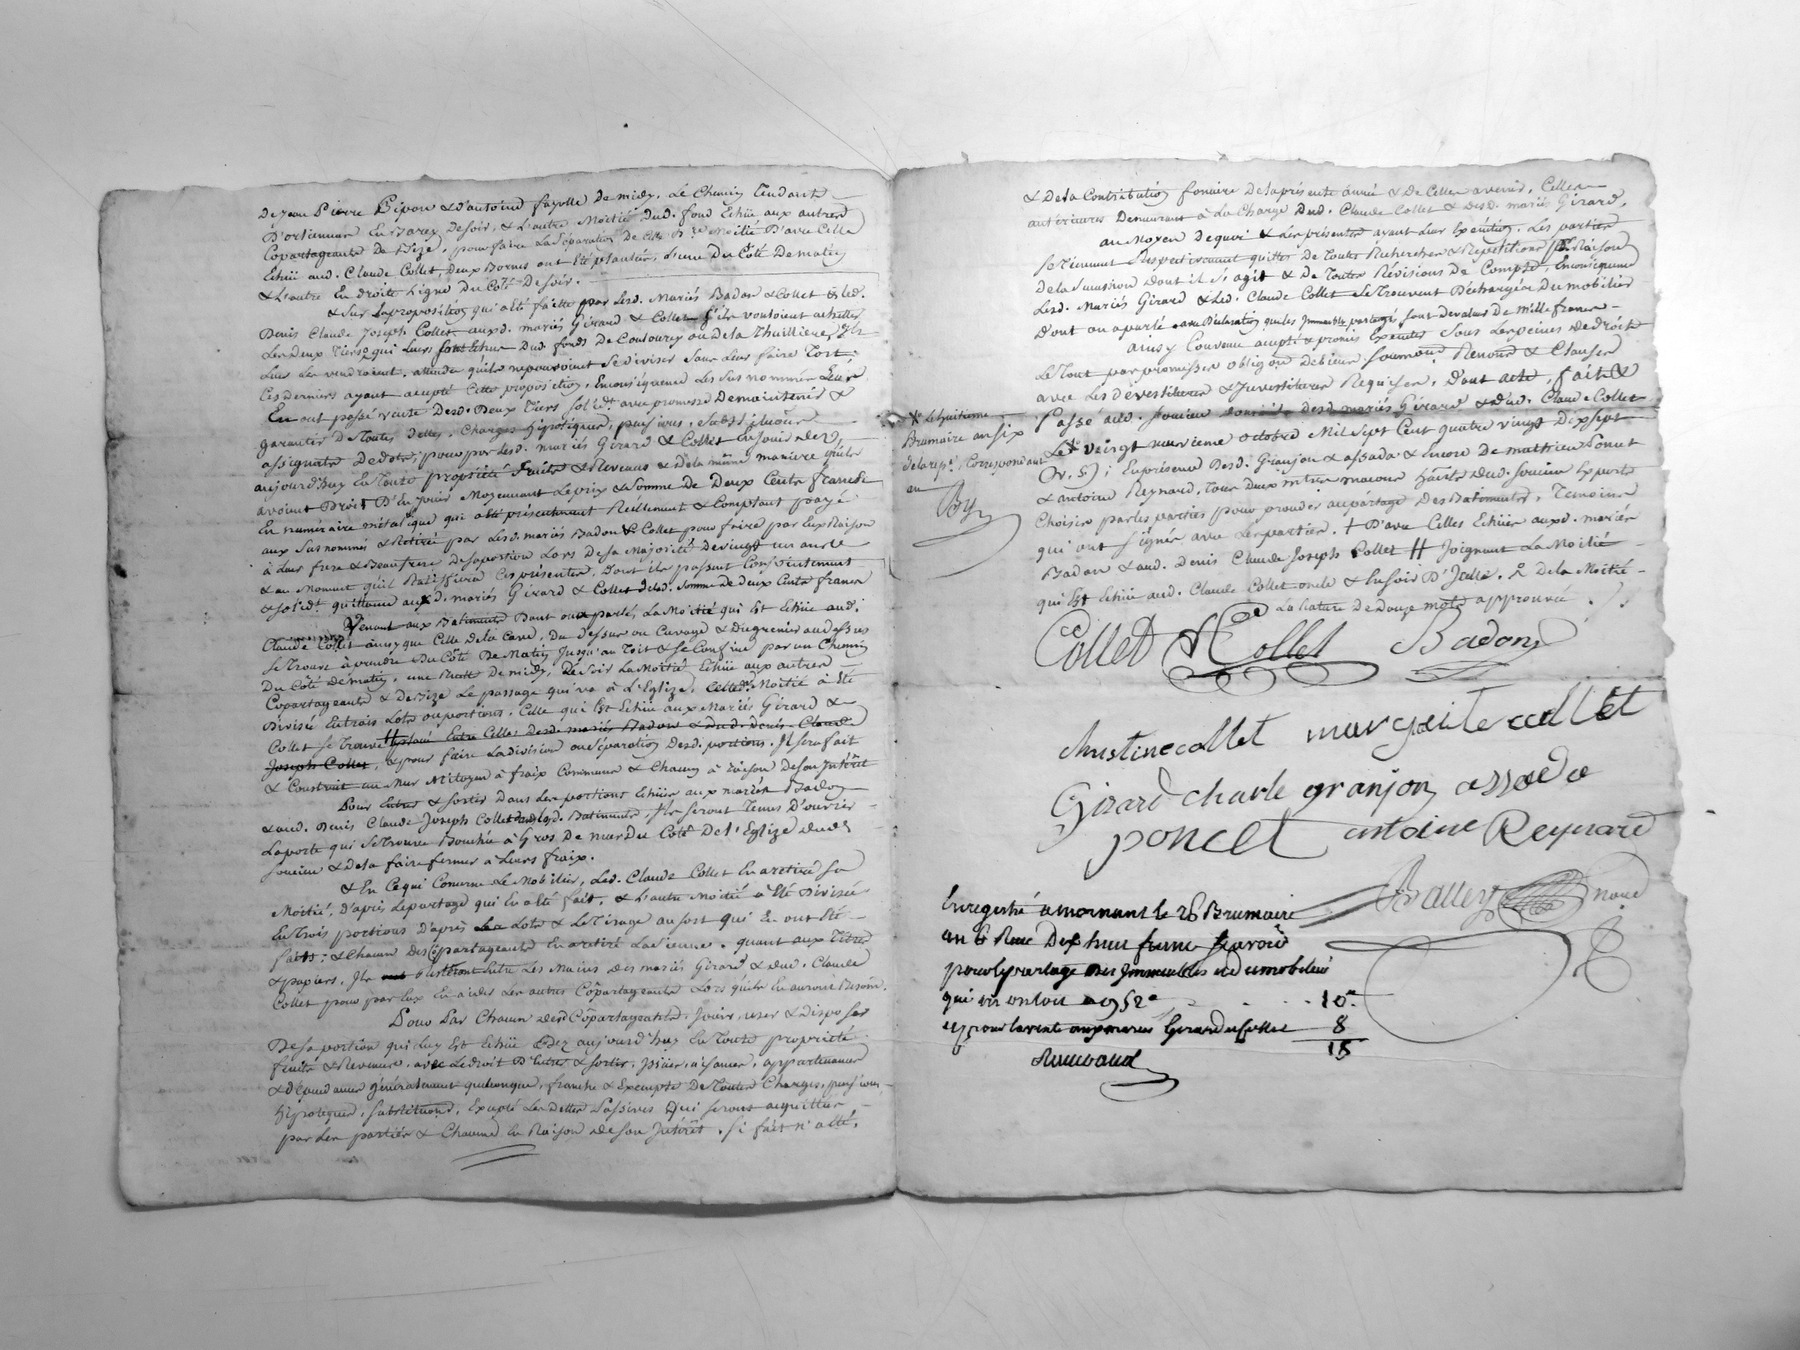 De Jean Pierre Pipon & d'antoine fayolle De midy, Le Chemin Tendant
D'orlienner En Barey De soir, & L'autre Moitié Dud. fond Echüe aux autres
Copartageants De Bize, pour faire La Séparation De Cette D.re Moitié D'avec Celle
Echüe aud. Claude Collet, Deux Bornes ont Eté plantées, L'une Du Côté De matin
& L'autre En droite Ligne Du Côté De soir.
& Sur La proposition qui a été faitte par Lesd. Mariés Badon & Collet & Led.
Denis Claude Joseph Collet auxd. mariés Girard & Collet S'ils vouloient achetter
Les Deux Tiers qui Leurs sont Echus Dud. fonds De Coutourey ou De la Thuilliere, Ils
Leur Les vendroient, attendu qu'ils ne pouvoient Se diviser Sans Leur faire Tort;
Ces derniers ayant accepté Cette proposition, En conséquence Les Sus nommés Leur
En ont passé vente Desd. Deux Tiers Solid.t avec promesse De maintenir &
garantir De Toutes Dettes, Charges, hipotèques, pensions, Substitutions
assignats De dote, pour par Lesd. mariés Girard & Collet En jouir Dez
aujourd'huy En Toute propriété fruits & Revenus & De la même manière qu'ils
avoient Droit D'En jouir Moyennant Le prix & Somme De Deux Cents francs
En numéraire métalique qui a été présentement Réellement & Comptant payé
aux Sus nommés & Retirée par Lesd. mariés Badon & Collet pour faire par Eux Raison
à Leur frere & Beaufrere De sa portion Lors De sa Majorité De vingt un ans
& au Moment qu'il Ratiffiera Ces présentes, Dont ils passent Conjointement
& solid.t quittance auxd. mariés Girard & Collet De lad. Somme De Deux Cents francs
Venant aux Batiments Dont on a parlé, La Moitié qui Est Echüe aud.
Claude Collet ainsy que Celle De la Cave, Du Dessus ou Cuvage & Du grenier au dessus
Se Trouve à prendre Du Côté De Matin Jusqu'au Toit & Se Confine par un Chemin
Du Côté De matin, une De midy, De soir La Moitié Echüe aux autres
Copartageants & De Bize Le passage qui va à L'Eglise. Cette D.re Moitié a Eté
Divisée En trois Lots ou portions. Celle qui Est Echüe aux Mariés Girard &
Collet Se Trouve # placée Entre Celles Desd. mariés Badon & Dud. Denis Claude
Joseph Collet, & pour faire La division ou Séparation Desd. portions. Il Sera fait
& Construit un Mur Mitoyen à fraix Communs & Chacun à Raison De son Intérêt
Pour Entrer & Sortir Dans Les portions Echües aux mariés Badon
& aud. Denis Claude Joseph Collet Desd. Batiments, Ils Seront Tenus D'ouvrir
La porte qui Se Trouve Bouchée à Gros De mur Du Coté De L'Eglise Dud.
Soucieu & De la faire fermer à Leurs fraix.
& En Ce qui Concerne Le Mobilier, Led. Claude Collet En a retiré Sa
Moitié, D'après Le partage qui En a Eté fait, & L'autre Moitié a Eté Divisée
En Trois portions D'après Les Lots & Le Tirage au Sort qui En ont Eté
faits; & Chacun Des Copartageants En a retiré La Sienne. quant aux Titres
& papiers, Ils Resteront Entre Les Mains Des mariés Girard & Dud. Claude
Collet pour par Eux En aider Les autres Copartageants Lors qu'ils En auront Besoin.
Pour Par Chacun Desd. Copartageants, Jouir, user & Disposer
De Sa portion qui Luy Est Echüe Dez aujourd'huy En Toute propriété
fruits & Revenus, avec Le droit D'Entrer & Sortir, Issües, aisances, appartenances
& dépendances généralement quelconques, franche & Exempte De Toutes Charges, pensions
hipoteques, Substitutions, Excepté Les Dettes Passives Qui Seront acquittées
par Les parties & Chacune En Raison De Son Intérêt, Si fait n'a Eté,
& De la Contribution fonciere De la présente année & De Celles avenir, Celles
antérieures Demeurant à La Charge Dud. Claude Collet & Desd. mariés Girard.
au Moyen De quoi & Les présentes ayant Leur Exécution, Les parties
se Tiennent Respectivement quittes De Toutes Recherches & Répétitions pour Raison
De la Succession Dont il S'agit & De Toutes Révisions De Compte, En conséquence
Lesd. Mariés Girard & Led. Claude Collet Se Trouvent Déchargés Du mobilier
Dont on a parlé avec Déclaration que les Immeubles partagés sont de valeur De mille francs
ainsy Convenu accepté & promis Exécuter Sous Les peines De droit
Le Tout par promesses obligon De biens Soumon Renon & Clauses
avec Les Devestitures & Investitures Requises, Dont acte, fait &
Passé aud. Soucieu Desd. mariés Girard & Dud. Claude Collet
Le * vingt neuvieme octobre Mil Sept Cent quatre vingt Dix Sept
(v. s.); En présence Desd. Granjon & assada & Encore De mathieu Poncet
& antoine Reynard, Tous Deux m.tres macons hab.ts Dud. Soucieu Experts
Choisis par les parties pour procéder au partage Des Batiments, Témoins
qui ont Signés avec Les parties. + D'avec Celles Echües auxd. mariés
Badon & aud. Denis Claude Joseph Collet # Joignant La Moitié
qui Est Echüe aud. Claude Collet oncle & En soir D'Icelle. De la Moitié
La Rature De Douze mots approuvée
* Le huitieme
Brumaire an six
de la rep.e, Correspondant
au
By
Collet Collet Badon
christine collet marguerite collet
Girard charle granjon assada
poncet antoine Reynard
Balley
Enregistré a mornant le 26 Brumaire
an 6 Reçu Dix huit francs Savoir
pour le partage Des Immeubles et du mobilier
qui en 1952 10
et pour la vente aux maries Girard et Collet 8
18